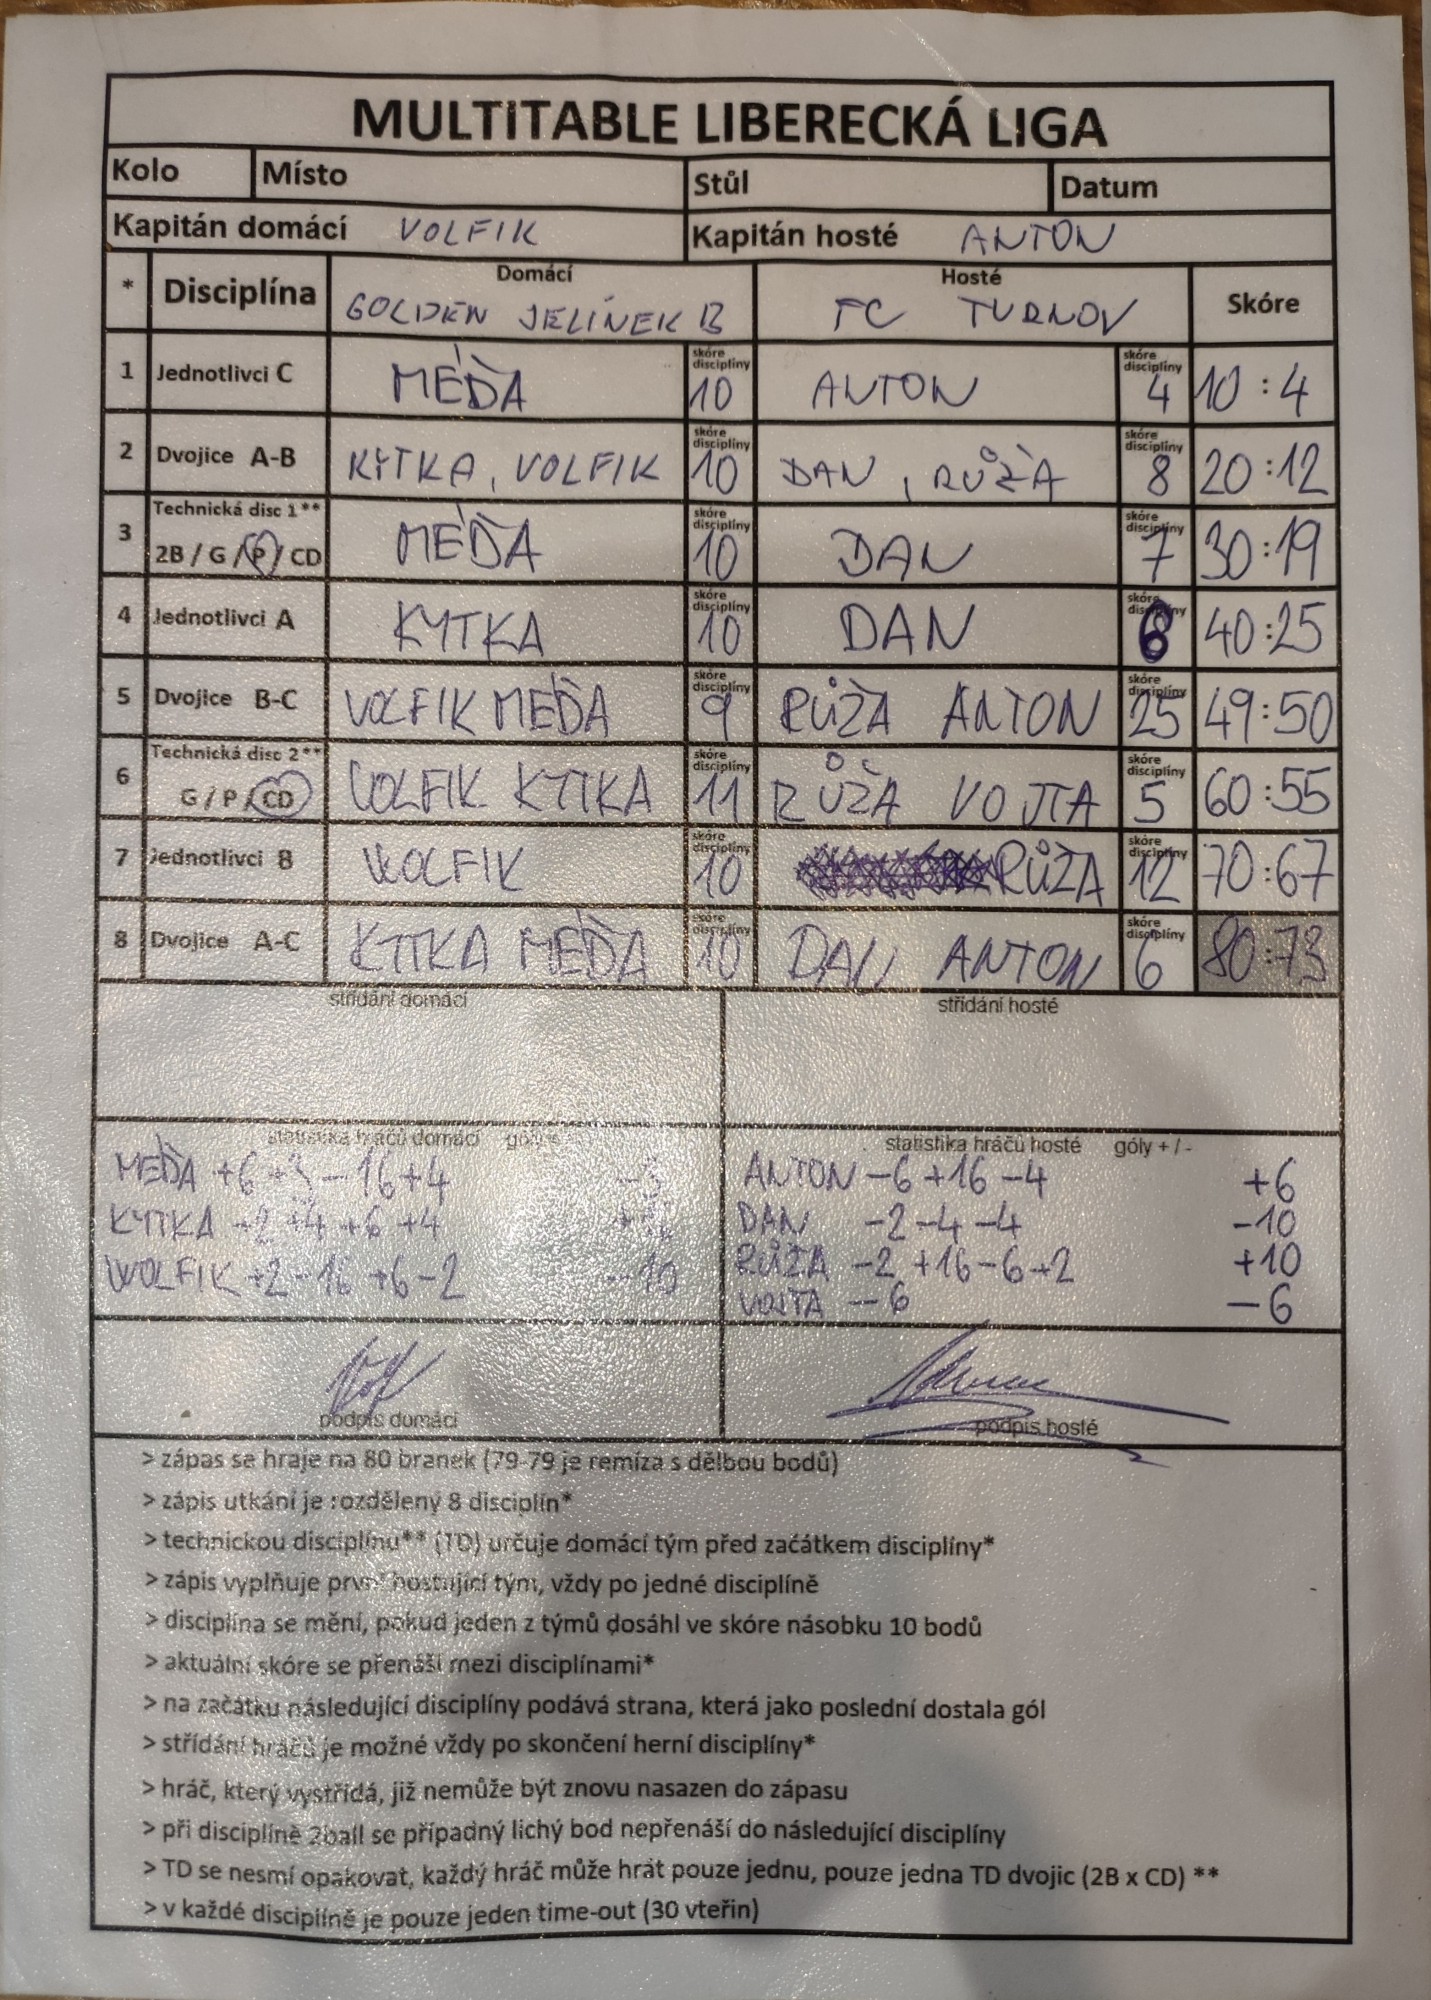 MULTITABLE LIBERECKÁ LIGA
Kolo Místo Stůl Datum
Kapitán domácí VOLFIK Kapitán hosté ANTON
* Disciplína Domácí Hosté Skóre
GOLDEN JELÍNEK B FC TURNOV
1 Jednotlivci C MÉĎA skóre disciplíny 10 ANTON skóre disciplíny 4 10:4
2 Dvojice A-B KYTKA, VOLFIK skóre disciplíny 10 DAN, RŮŽA skóre disciplíny 8 20:12
Technická disc 1**
3 2B / G / P / CD MÉĎA skóre disciplíny 10 DAN skóre disciplíny 7 30:19
4 Jednotlivci A KYTKA skóre disciplíny 10 DAN skóre disciplíny 6 40:25
5 Dvojice B-C VOLFIK MEĎA skóre disciplíny 9 RŮŽA ANTON skóre disciplíny 25 49:50
Technická disc 2**
6 G / P / CD VOLFIK KYTKA skóre disciplíny 11 RŮŽA VOJTA skóre disciplíny 5 60:55
7 Jednotlivci B VOLFIK skóre disciplíny 10 RŮŽA skóre disciplíny 12 70:67
8 Dvojice A-C KYTKA MEĎA skóre disciplíny 10 DAN ANTON skóre disciplíny 6 80:73
střídání domácí střídání hosté
statistika hráčů domácí góly statistika hráčů hosté góly + / -
MEĎA +6 +3 -16 +4 -3 ANTON -6 +16 -4 +6
KYTKA +2 +4 +6 +4 DAN -2 -4 -4 -10
VOLFIK +2 -16 +6 -2 -10 RŮŽA -2 +16 -6 +2 +10
VOJTA -6 -6
podpis domácí podpis hosté
> zápas se hraje na 80 branek (79-79 je remíza s dělbou bodů)
> zápis utkání je rozdělený 8 disciplín*
> technickou disciplínu** (TD) určuje domácí tým před začátkem disciplíny*
> zápis vyplňuje první hostující tým, vždy po jedné disciplíně
> disciplína se mění, pokud jeden z týmů dosáhl ve skóre násobku 10 bodů
> aktuální skóre se přenáší mezi disciplínami*
> na začátku následující disciplíny podává strana, která jako poslední dostala gól
> střídání hráčů je možné vždy po skončení herní disciplíny*
> hráč, který vystřídá, již nemůže být znovu nasazen do zápasu
> při disciplíně 2ball se případný lichý bod nepřenáší do následující disciplíny
> TD se nesmí opakovat, každý hráč může hrát pouze jednu, pouze jedna TD dvojic (2B x CD) **
> v každé disciplíně je pouze jeden time-out (30 vteřin)